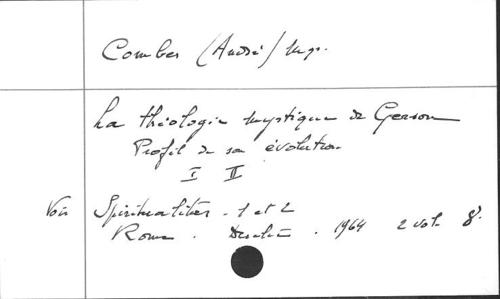 Combes (André) Mgr.
La théologie mystique de Gerson
Profil de son évolution
I II
Voir Spiritualitas. 1 et 2
Rome. Desclée. 1964 2 vol. 8°